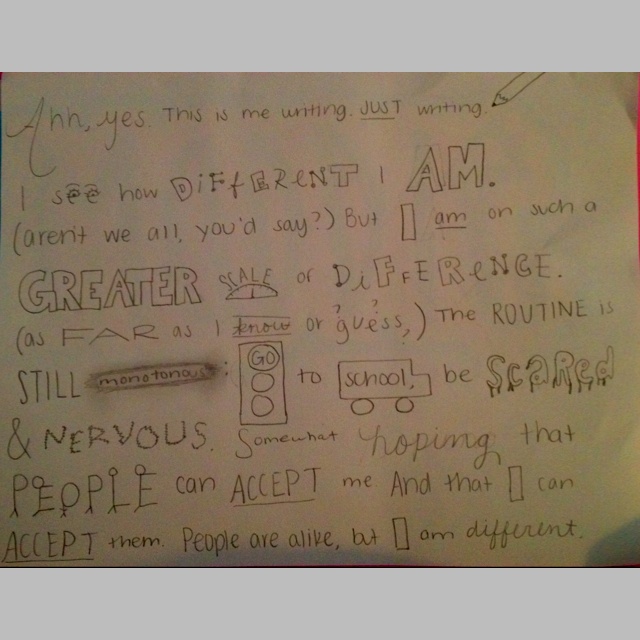 Ahh, yes. This is me writing. JUST writing.
I see how DiFfERENT I AM.
(aren't we all, you'd say?) But I am on such a
GREATER SCALE of DiFFERENCE.
(as FAR as I know or guess,) The ROUTINE is
STILL monotonous: GO to school, be Scared
& NERVOUS. Somewhat hoping that
PEOPLE can ACCEPT me And that I can
ACCEPT them. People are alike, but I am different.